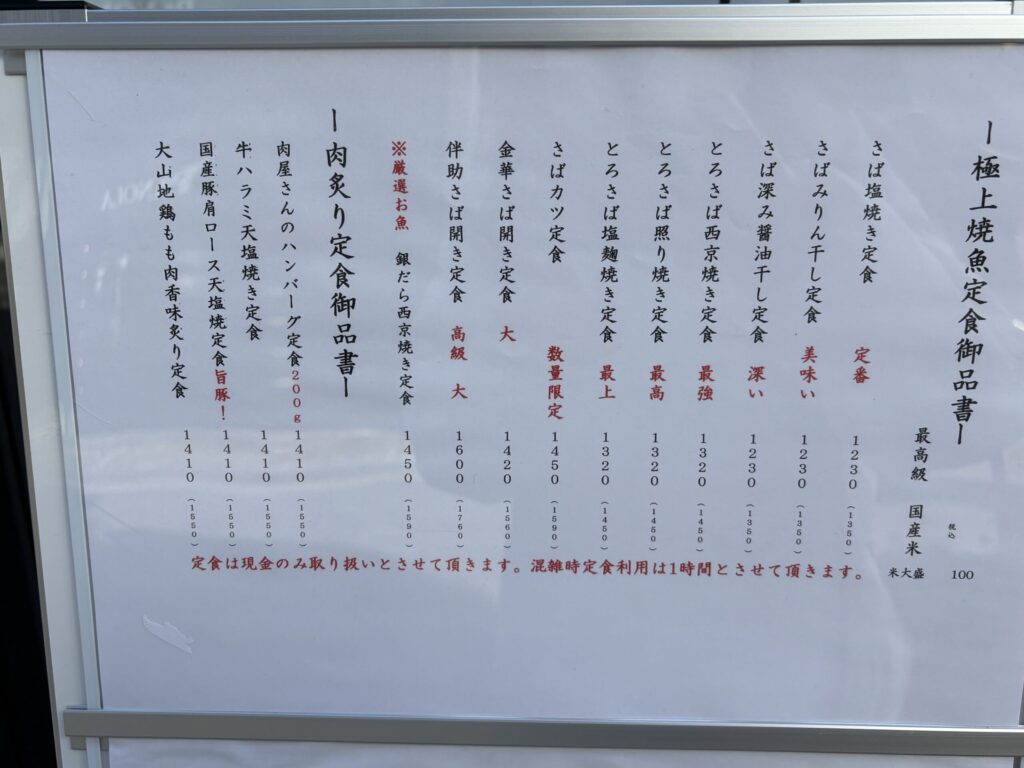 ー極上焼魚定食御品書ー
最高級　国産米
税込
米大盛　100
さば塩焼き定食　定番　1230（1350）
さばみりん干し定食　美味い　1230（1350）
さば深み醤油干し定食　深い　1230（1350）
とろさば西京焼き定食　最強　1320（1450）
とろさば照り焼き定食　最高　1320（1450）
とろさば塩麹焼き定食　最上　1320（1450）
さばカツ定食　数量限定　1450（1590）
金華さば開き定食　大　1420（1560）
伴助さば開き定食　高級　大　1600（1760）
※厳選お魚　銀だら西京焼き定食　1450（1590）
ー肉炙り定食御品書ー
肉屋さんのハンバーグ定食200g　1410（1550）
牛ハラミ天塩焼き定食　1410（1550）
国産豚肩ロース天塩焼定食旨豚！　1410（1550）
大山地鶏もも肉香味炙り定食　1410（1550）
定食は現金のみ取り扱いとさせて頂きます。混雑時定食利用は1時間とさせて頂きます。